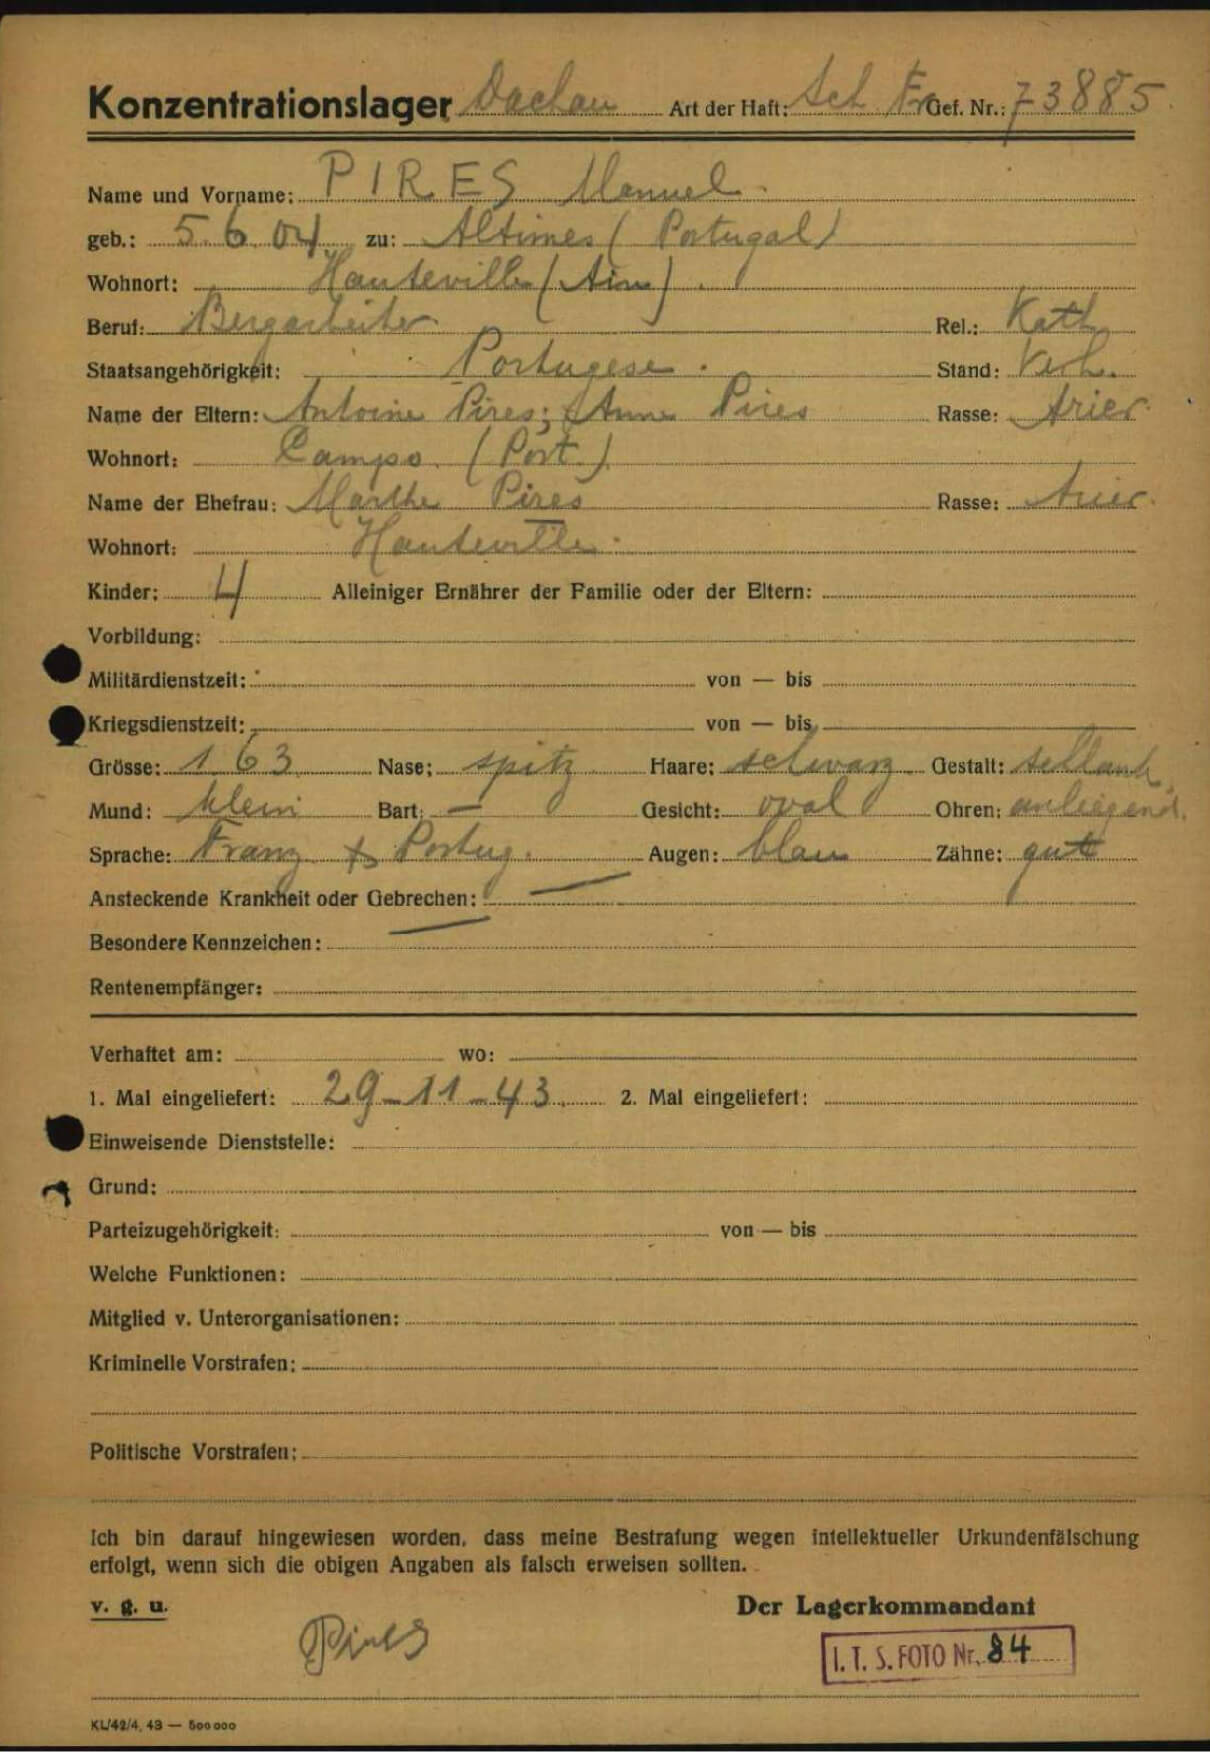 Konzentrationslager Dachau Art der Haft: Sch Fr Gef. Nr.: 73885
Name und Vorname: PIRES Manuel
geb.: 5.6.04 zu: Altimes (Portugal)
Wohnort: Hauteville (Ain)
Beruf: Bergarbeiter Rel.: Kath
Staatsangehörigkeit: Portugese Stand: Verh.
Name der Eltern: Antoine Pires; Anna Pires Rasse: Arier
Wohnort: Campo. (Port.)
Name der Ehefrau: Marthe Pires Rasse: Arier
Wohnort: Hauteville
Kinder: 4 Alleiniger Ernährer der Familie oder der Eltern:
Vorbildung:
Militärdienstzeit: von — bis
Kriegsdienstzeit: von — bis
Grösse: 163 Nase: spitz Haare: schwarz Gestalt: schlank
Mund: klein Bart: — Gesicht: oval Ohren: anliegend.
Sprache: Franz + Portug. Augen: blau Zähne: gut
Ansteckende Krankheit oder Gebrechen: —
Besondere Kennzeichen: —
Rentenempfänger:
Verhaftet am: wo:
1. Mal eingeliefert: 29-11-43. 2. Mal eingeliefert:
Einweisende Dienststelle:
Grund:
Parteizugehörigkeit: von — bis
Welche Funktionen:
Mitglied v. Unterorganisationen:
Kriminelle Vorstrafen:
Politische Vorstrafen:
Ich bin darauf hingewiesen worden, dass meine Bestrafung wegen intellektueller Urkundenfälschung
erfolgt, wenn sich die obigen Angaben als falsch erweisen sollten.
v. g. u. Der Lagerkommandant
Pires I. T. S. FOTO Nr. 84
KL/42/4. 43 — 500 000